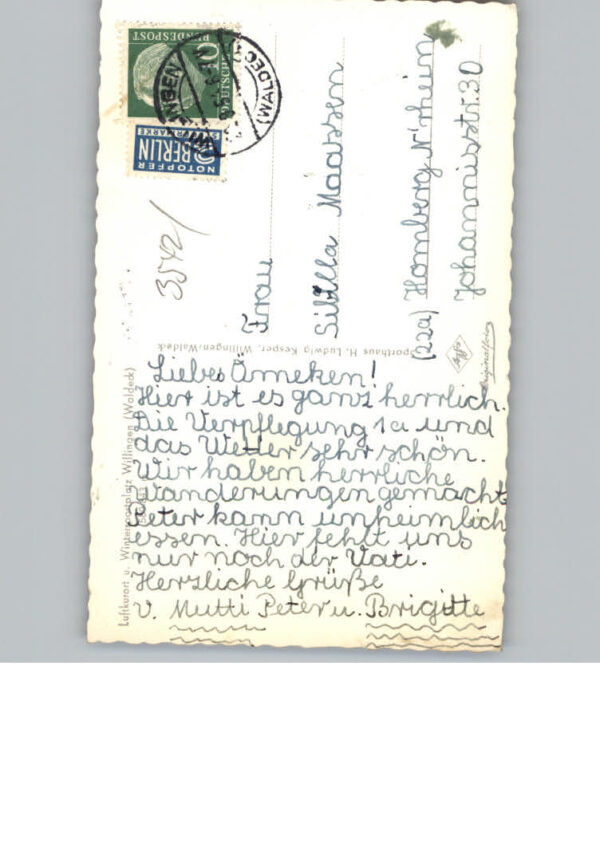 DEUTSCHE
BUNDESPOST
10
WILLINGEN
(WALDECK)
NOTOPFER
2 BERLIN
STEUERMARKE
3542/
Frau
Sibilla Maassen
(22a) Homberg N'rhein
Johannisstr. 30
Sporthaus H. Ludwig Kesper, Willingen-Waldeck
Agfa
Luftkurort u. Wintersportplatz Willingen (Waldeck)
Liebes Ömeken!
Hier ist es ganz herrlich.
Die Verpflegung 1a und
das Wetter sehr schön.
Wir haben herrliche
Wanderungen gemacht
Peter kann unheimlich
essen. Hier fehlt uns
nur noch der Vati.
Herzliche Grüße
v. Mutti Peter u. Brigitte